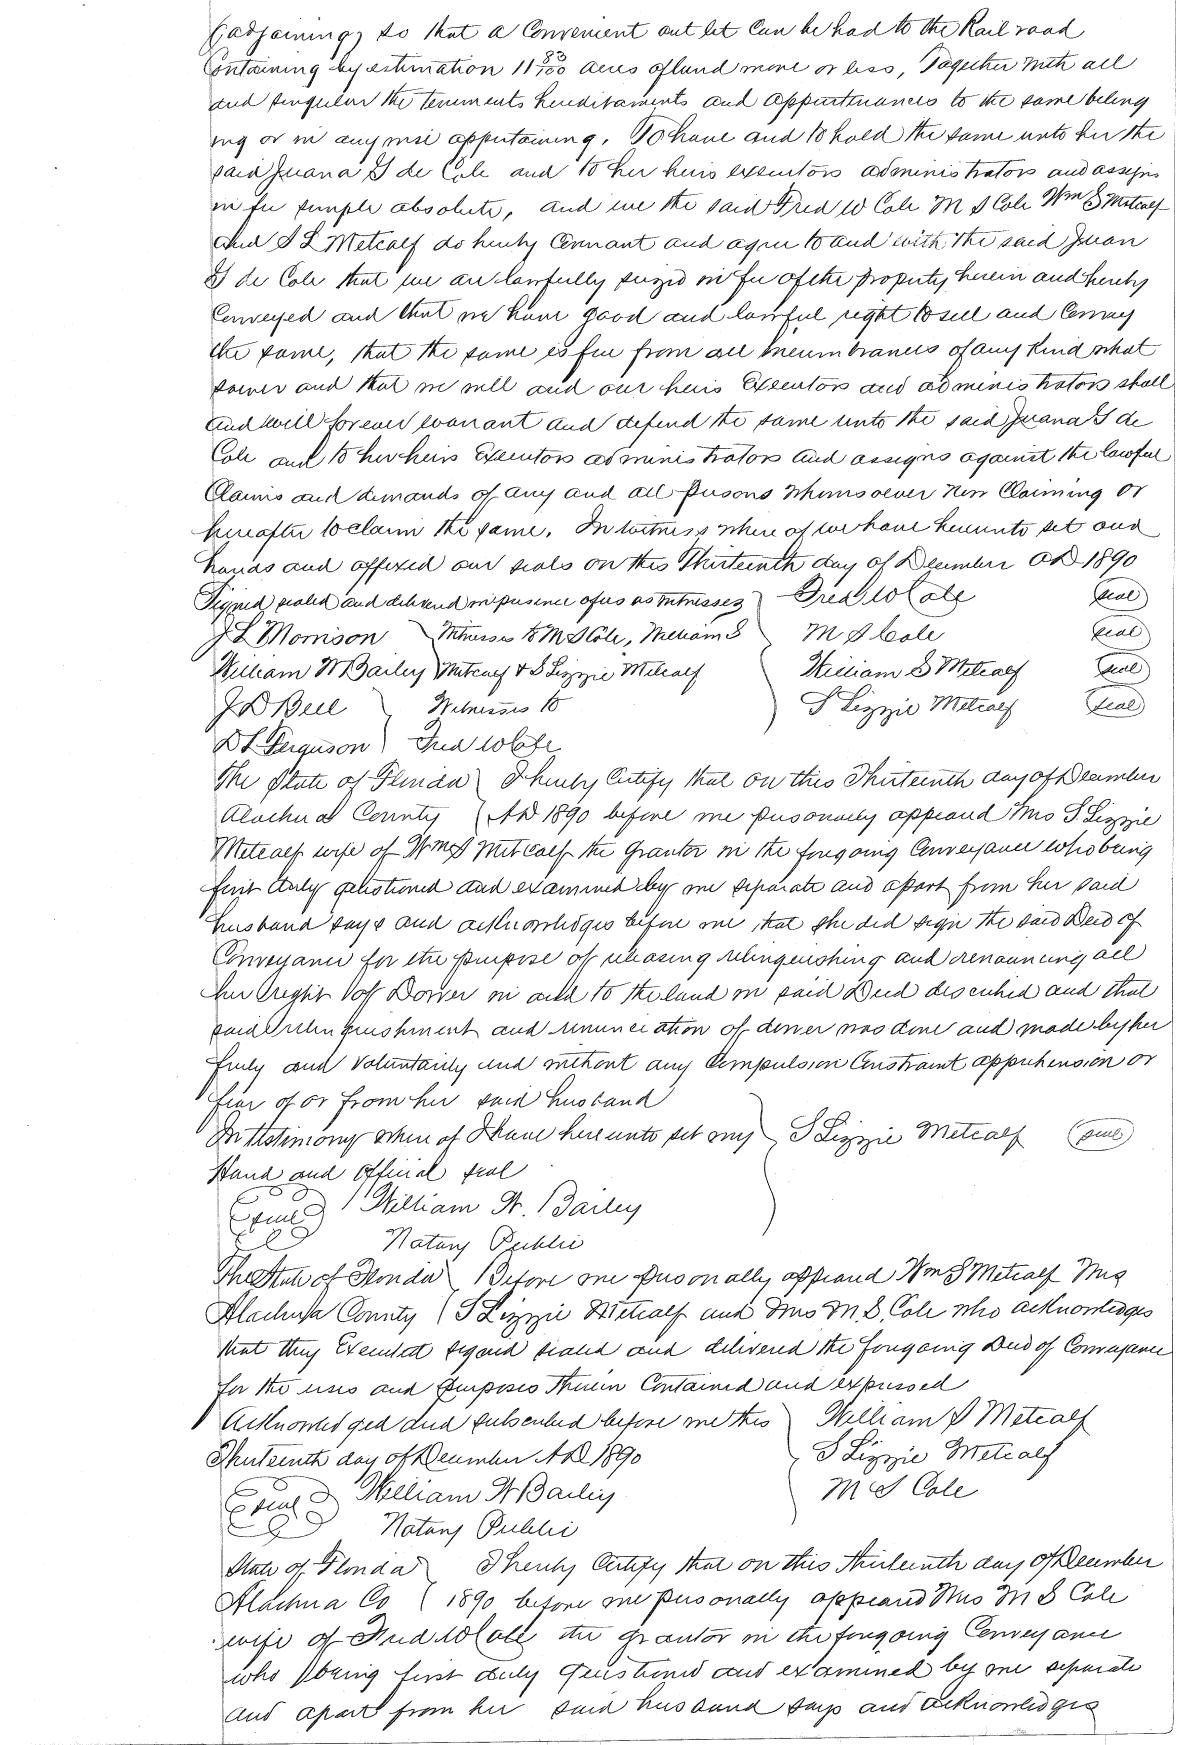 (adjoining) so that a Convenient out let Can be had to the Rail road
Containing by estimation 11 83/100 acres of land more or less, Together with all
and singular the tenements hereditaments and appurtenances to the same belong
ing or in any wise appertaining. To have and to hold the same unto her the
said Juana G de Cole and to her heirs executors administrators and assigns
in fee simple absolute, and we the said Fred W Cole M S Cole Wm S Metcalf
and S L Metcalf do hereby Covenant and agree to and with the said Juan
G de Cole that we are lawfully seized in fee of the property herein and hereby
Conveyed and that we have good and lawful right to sell and Convey
the same, that the same is free from all incumbrances of any Kind what
soever and that we will and our heirs Executors and administrators shall
and will forever warrant and defend the same unto the said Juana G de
Cole and to her heirs Executors administrators and assigns against the lawful
Claims and demands of any and all persons whomsoever now Claiming or
hereafter to claim the same. In witness where of we have hereunto set and
hands and affixed our seals on this Thirteenth day of December AD 1890
Signed sealed and delivered in presence of us as witnesses Fred W Cole (seal)
J L Morrison Witnesses to M S Cole, William S M S Cole (seal)
William W Bailey Metcalf & S Lizzie Metcalf William S Metcalf (seal)
J D Bell Witnesses to S Lizzie Metcalf (seal)
D L Ferguson Fred W Cole
The State of Florida I hereby Certify that on this Thirteenth day of December
Alachua County AD 1890 before me personally appeared Mrs S Lizzie
Metcalf wife of Wm S Metcalf the Grantor in the foregoing Conveyance who being
first duly questioned and examined by me separate and apart from her said
husband says and acknowledges before me, that she did sign the said Deed of
Conveyance for the purpose of releasing relinquishing and renouncing all
her right of Dower in and to the land in said Deed described and that
said relinquishment and renunciation of dower was done and made by her
freely and voluntarily and without any Compulsion Constraint apprehension or
fear of or from her said husband
In testimony where of I have here unto set my S Lizzie Metcalf (seal)
Hand and Official seal
(seal) William W. Bailey
Notary Public
The State of Florida Before me personally appeared Wm S Metcalf Mrs
Alachua County S Lizzie Metcalf and Mrs M. S. Cole who acknowledges
that they Executed signed sealed and delivered the foregoing Deed of Conveyance
for the uses and purposes therein Contained and expressed
Acknowledged and subscribed before me this William S Metcalf
Thirteenth day of December AD 1890 S Lizzie Metcalf
(seal) William W Bailey M S Cole
Notary Public
State of Florida I hereby Certify that on this thirteenth day of December
Alachua Co 1890 before me personally appeared Mrs M S Cole
wife of Fred W Cole the grantor in the foregoing Conveyance
who being first duly Questioned and examined by me separate
and apart from her said husband says and acknowledges